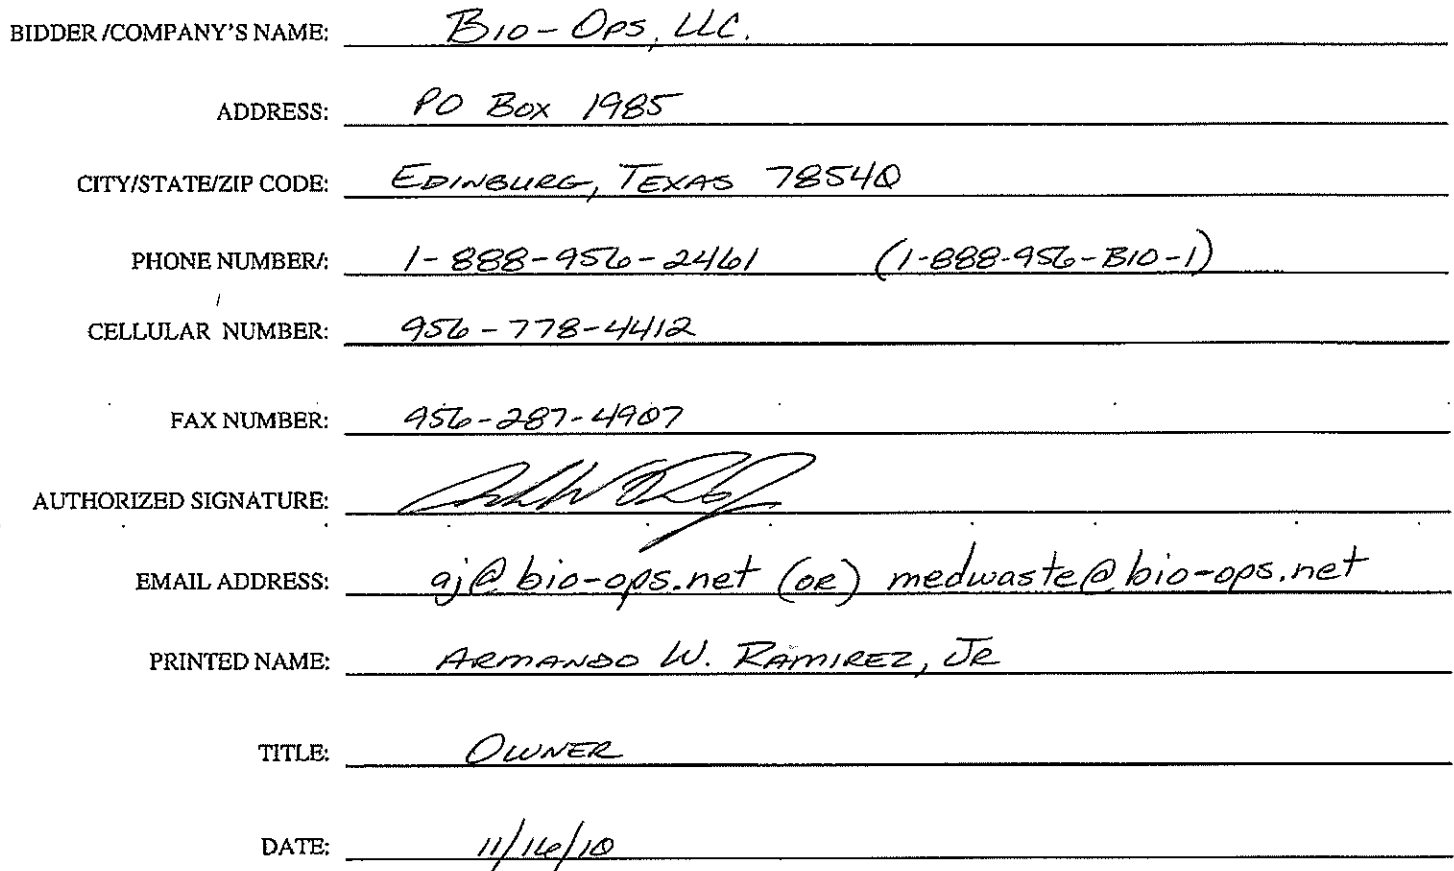 BIDDER /COMPANY'S NAME: BIO-OPS, LLC.
ADDRESS: PO BOX 1985
CITY/STATE/ZIP CODE: EDINBURG, TEXAS 78540
PHONE NUMBER/: 1-888-956-2461 (1-888-956-BIO-1)
CELLULAR NUMBER: 956-778-4412
FAX NUMBER: 956-287-4907
AUTHORIZED SIGNATURE:
EMAIL ADDRESS: aj@bio-ops.net (OR) medwaste@bio-ops.net
PRINTED NAME: ARMANDO W. RAMIREZ, JR
TITLE: OWNER
DATE: 11/16/10